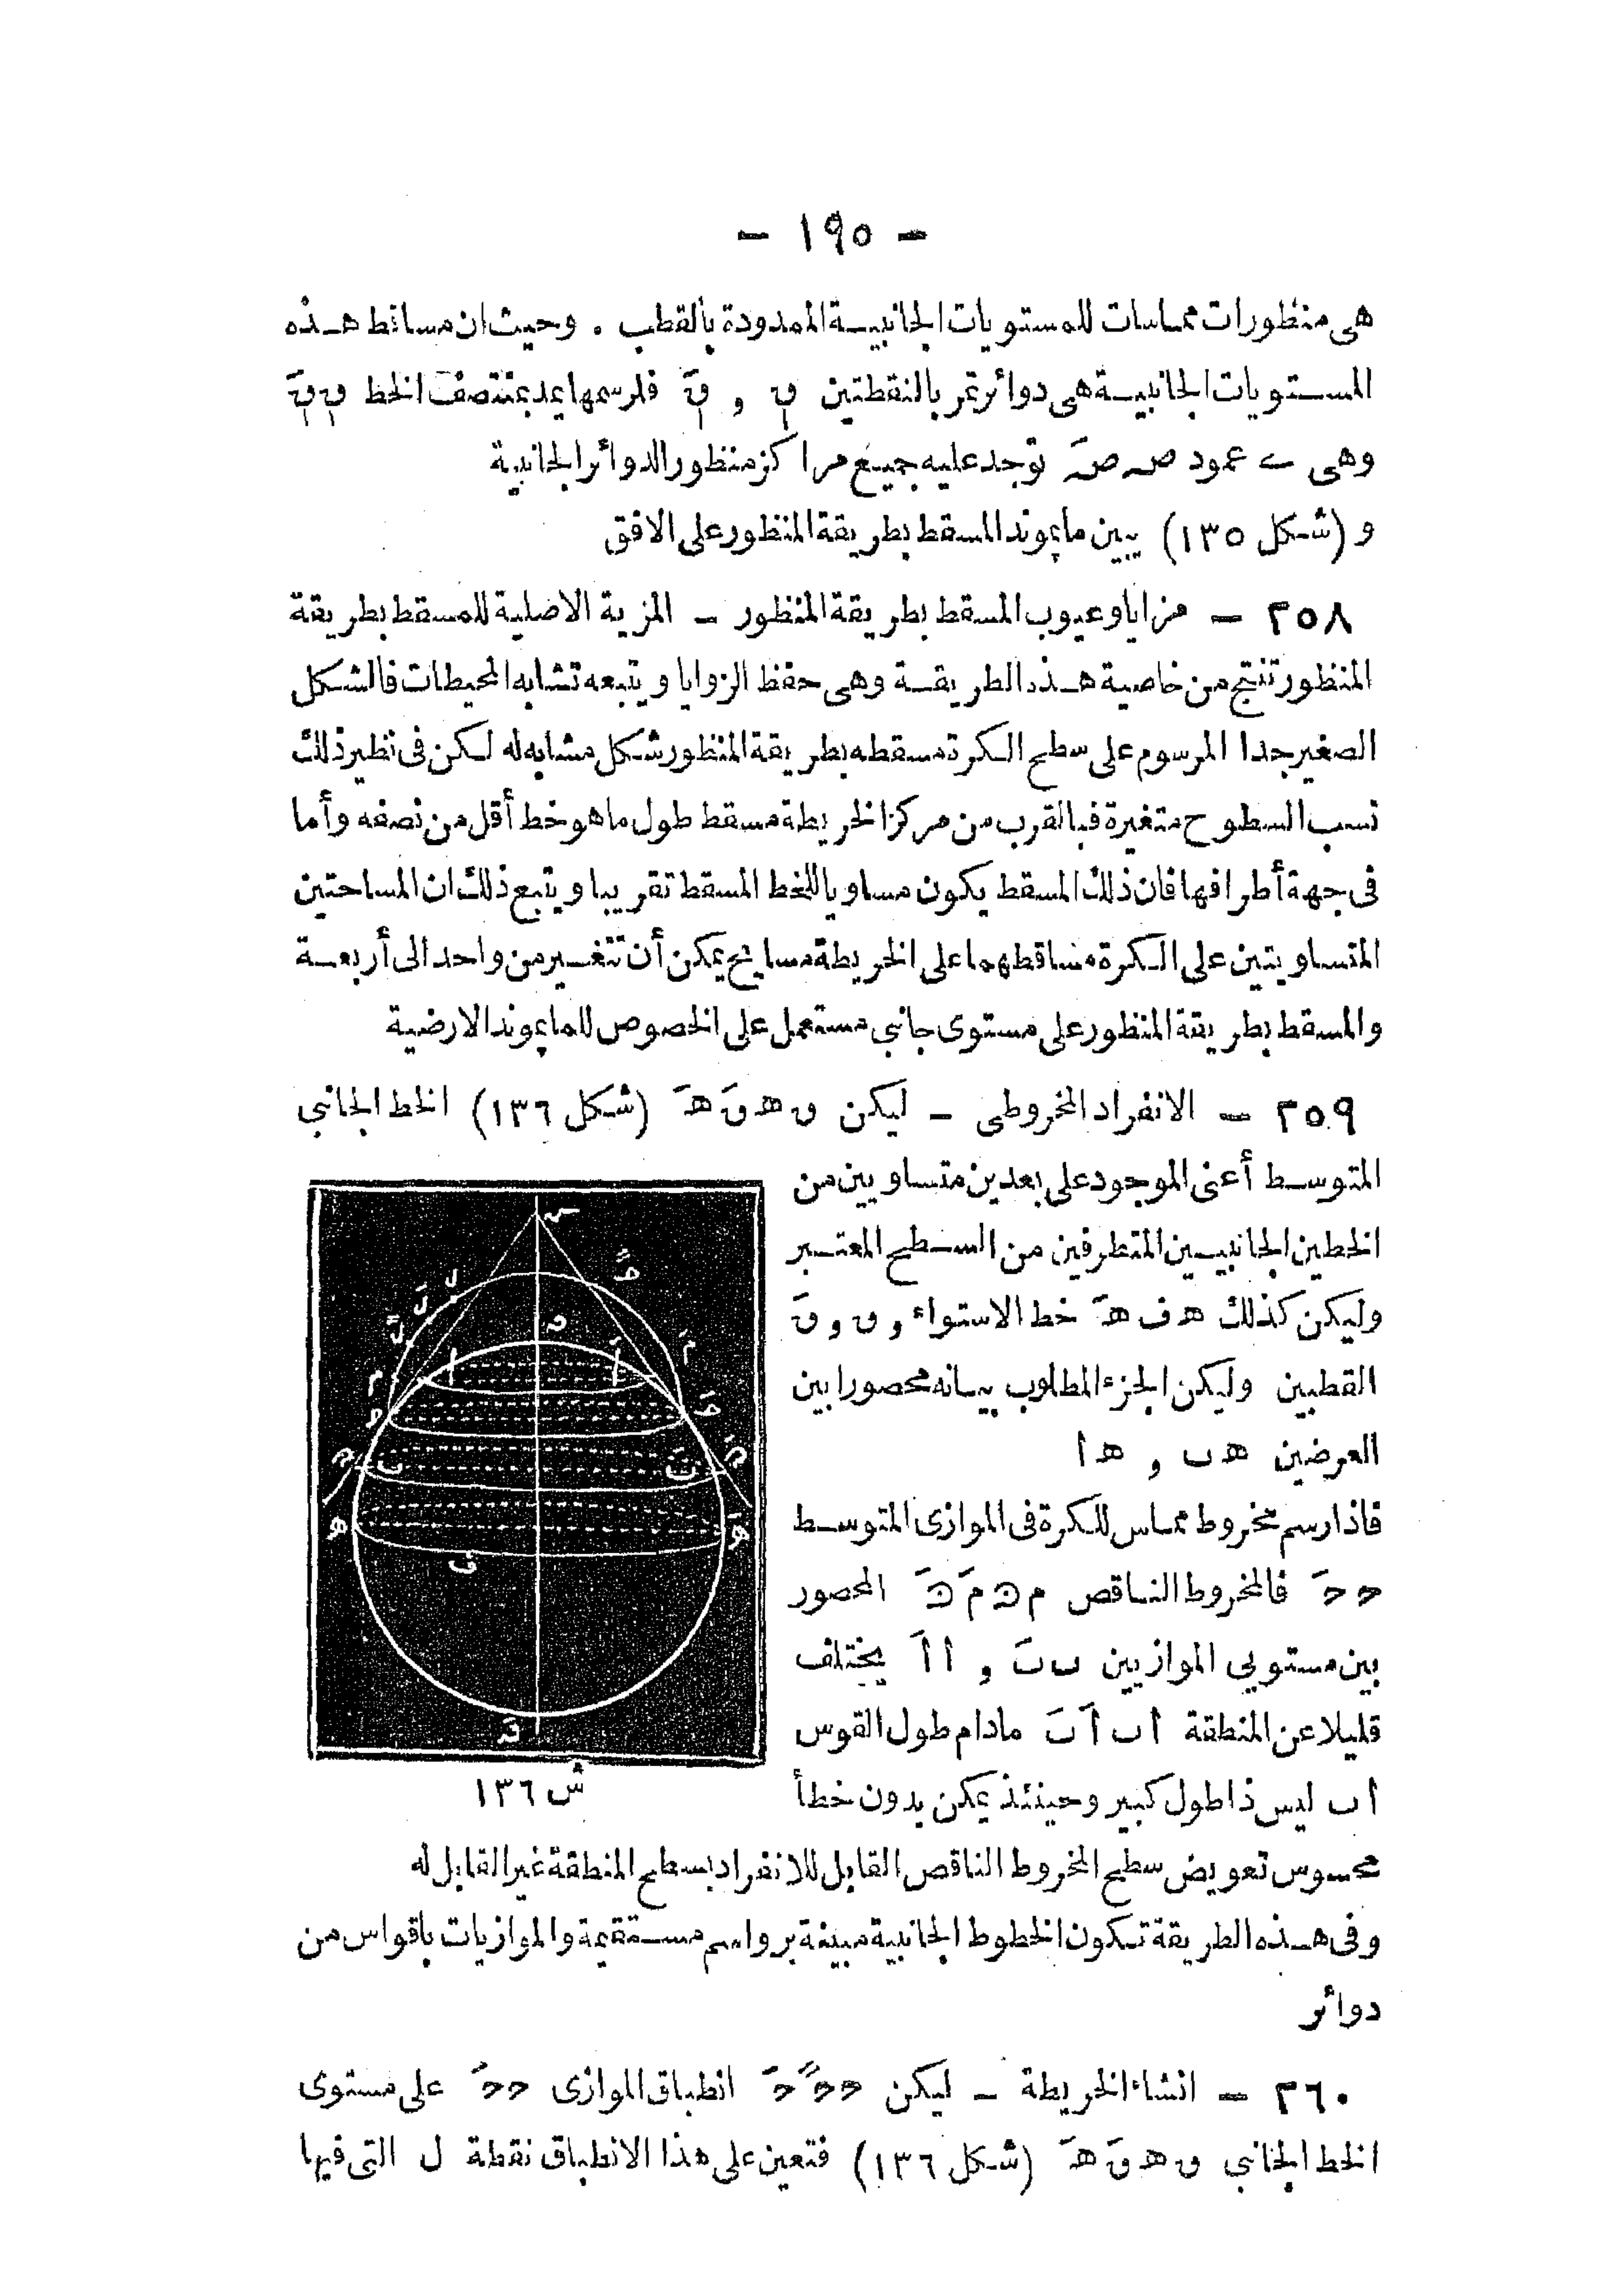 - ١٩٥ -
هى منظورات مماسات للمستويات الجانبيـة الممدودة بالقطب . وحيث ان مساقط هـذه
المسـتويات الجانبيـة هى دوائر تمر بالنقطتين و فلرسمها يمد بمنتصف الخط
وهى عمود صـ صـَ توجد عليه جميع مراكز منظور الدوائر الجانبية
و (شكل ١٣٥) يبين مايموند المسقط بطريقة المنظور على الافق
٢٥٨ - مزايا وعيوب المسقط بطريقة المنظور - المزية الاصلية للمسقط بطريقة
المنظور تنتج من خاصية هـذه الطريقـة وهى حفظ الزوايا ويتبعه تشابه المحيطات فالشكل
الصغير جدا المرسوم على سطح الكرة مسقطه بطريقة المنظور شكل مشابه له لـكن فى نظير ذلك
نسب السطوح متغيرة فبالقرب من مركز الخريطة مسقط طول ما هو خط أقل من نصفه وأما
فى جهة أطرافها فان ذلك المسقط يكون مساويا للخط المسقط تقريبا ويتبع ذلك ان المساحتين
المتساويتين على الـكرة مساقطهما على الخريطة مسايح يمكن أن تتغـير من واحد الى أربعـة
والمسقط بطريقة المنظور على مستوى جانبى مستعمل على الخصوص للمايموند الارضية
٢٥٩ - الانفراد المخروطى - ليكن ں هـ ںَ هـَ (شكل ١٣٦) الخط الجانبى
المتوسـط أعنى الموجود على بعدين متساويين من
الخطين الجانبيـين المتطرفين من السـطح المعتـبر
وليكن كذلك هـ ف هـَ خط الاستواء و ں و ںَ
القطبين وليكن الجزء المطلوب بيـانه محصورا بين
العرضين هـ ٮ و هـ ا
فاذا رسم مخروط مماس للـكرة فى الموازى المتوسـط
حـ حـَ فالمخروط النـاقص م ﮪ مَ ﮪَ المحصور
بين مستويى الموازيين ٮ ٮَ و ا اَ يختلف
قليلا عن المنطقة ا ٮ اَ ٮَ مادام طول القوس
ا ٮ ليس ذا طول كبير وحينئذ يمكن بدون خطأ
محسوس تعويض سطح المخروط الناقص القابل للانفراد بسطح المنطقة غير القابل له
وفى هـذه الطريقة تـكون الخطوط الجانبية مبينة برواسم مسـتقيمة والموازيات باقواس من
دوائر
٢٦٠ - انشاء الخريطة - ليكن حـ حـً حـَ انطباق الموازى حـ حـَ على مستوى
الخط الجانبى ں هـ ںَ هـَ (شكل ١٣٦) فتعين على هذا الانطباق نقطة ل التى فيها
ل
لَ
لً
م
مَ
ا
اَ
ٮ
ٮَ
هـ
هـَ
ف
ش ١٣٦